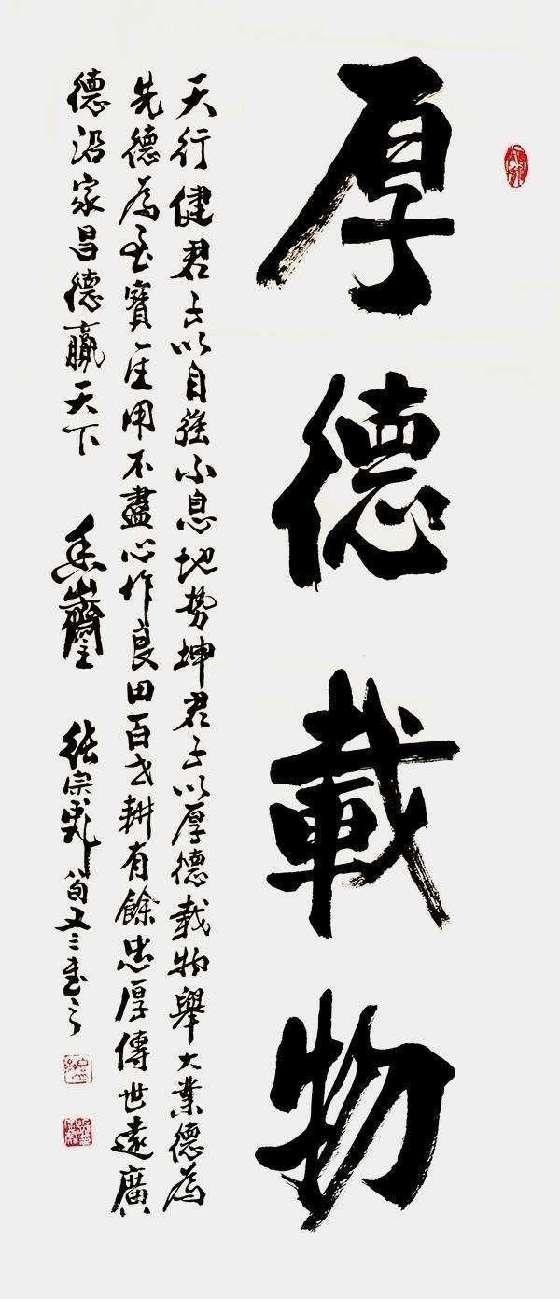 厚德載物
天行健君子以自强不息地势坤君子以厚德載物舉大業德為
先德為至寶一生用不盡心作良田百世耕有餘忠厚傳世遠廣
德沿家昌德贏天下
香山齋主 張宗彪 八旬又三書之